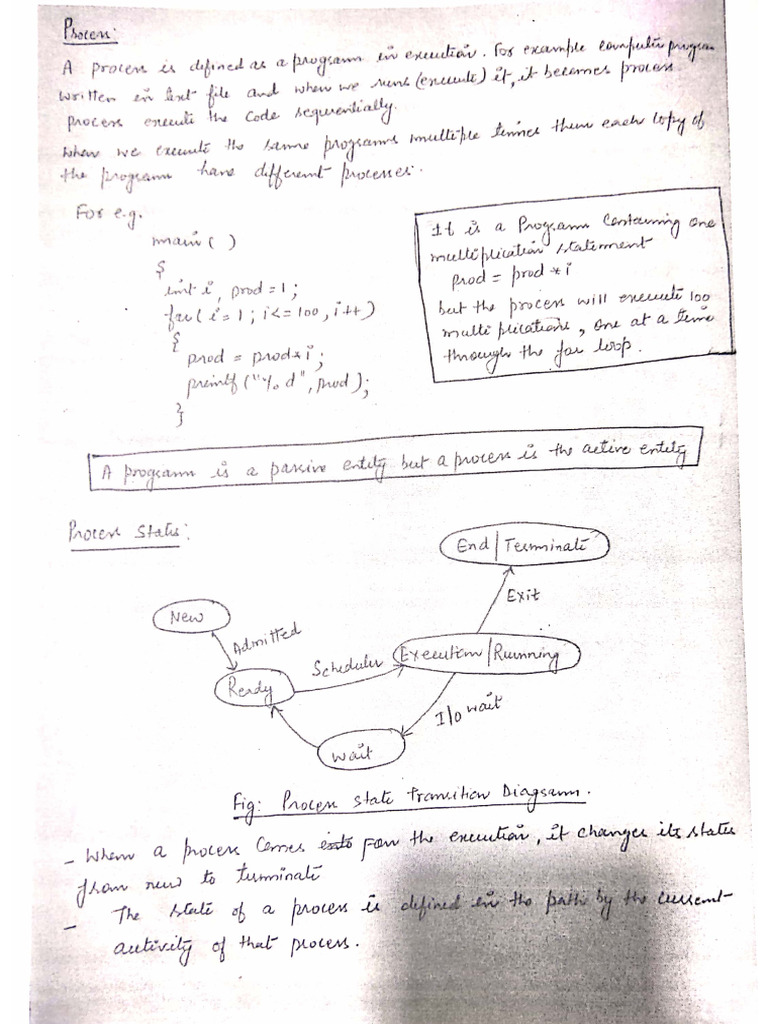 Process:
A process is defined as a program in execution. For example computer program
written in text file and when we runs (execute) it, it becomes process
process execute the code sequentially.
when we execute the same programs multiple times then each copy of
the program have different processes.
For e.g.
main( )
{
int i, prod = 1;
for( i = 1 ; i <= 100, i++)
{
prod = prod * i;
printf ("% d", prod);
}
}
It is a Program Containing one
multiplication statement
prod = prod * i
but the process will execute 100
multiplications, one at a time
through the for loop.
A program is a passive entity but a process is the active entity
Process States:
End | Terminate
Exit
New
Admitted
Scheduler
Execution | Running
Ready
I/O wait
Wait
Fig: Process state Transition Diagram.
- When a process comes for the execution, it changes its states
from new to terminate
- The state of a process is defined in the path by the current
activity of that process.